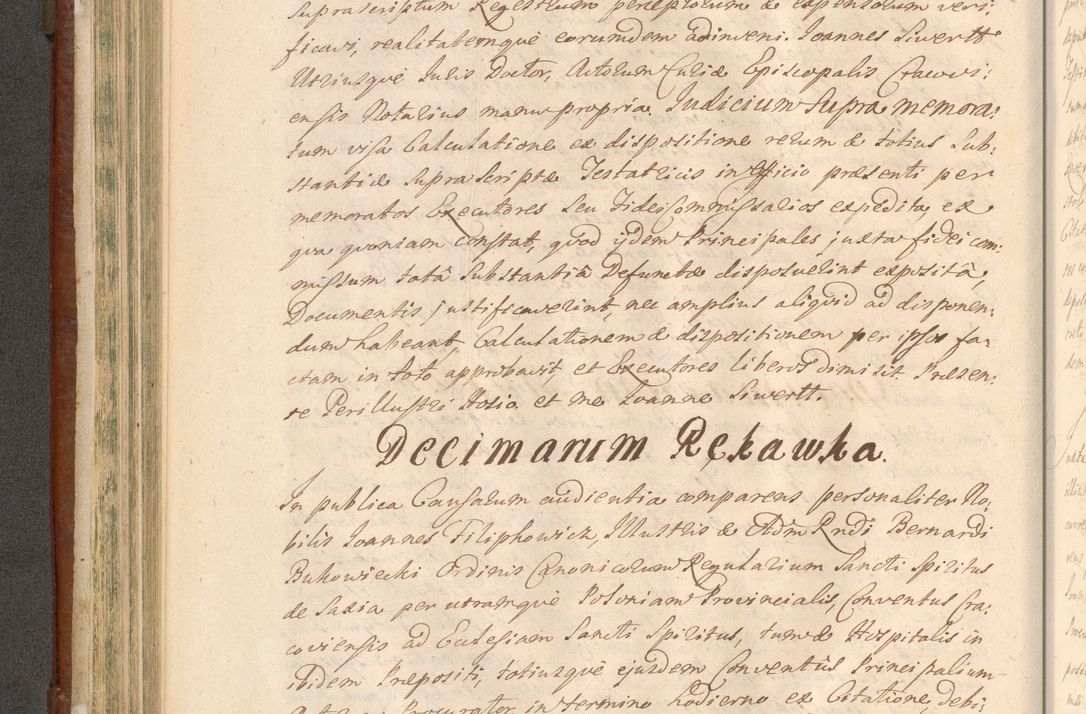 supraseriptum Regestrum perceptorum & expensorum veri:
ficavi, realitatemque eorumdem adinveni. Joannes Siwertt
Utriusque Juris Doctor, Actorum Curiæ Episcopalis Cracovi:
ensis Notarius manu propria. Judicium supra memora:
tum visa Calculatione ex dispositione rerum & totius Sub:
stantiæ supra Scriptæ Testatricis in Officio præsenti per
memoratos Executores seu Fidei Commissarios expedita ex
qva qvoniam constat, qvod ijdem Principales juxta fidei com:
missum totâ Substantiâ Defunctæ disposuerint expositâ,
Documentis justificaverint, nec amplius aliqvid ad disponen:
dum habeant, Calculationem & dispositionem per ipsos fa:
ctam in toto approbavit, et Executores liberos dimisit. Præsen:
te Perillustri Hosio et me Joanne Siwertt.
Decimarum Rękawka.
In publica Causarum audientia comparens personaliter No:
bilis Joannes Filiphowicz, Illustris & Adm Rndi Bernardi
Bukowiecki Ordinis Canonicorum Regularium Sancti Spiritus
de Saxia per utramque Poloniam Provincialis, Conventus Cra:
coviensis ad Ecclesiam Sancti Spiritus, tum & Hospitalis in
ibidem Præpositi, totiusque ejusdem Conventûs Principalium
Procurator, in termino hodierno ex Citatione, debi: